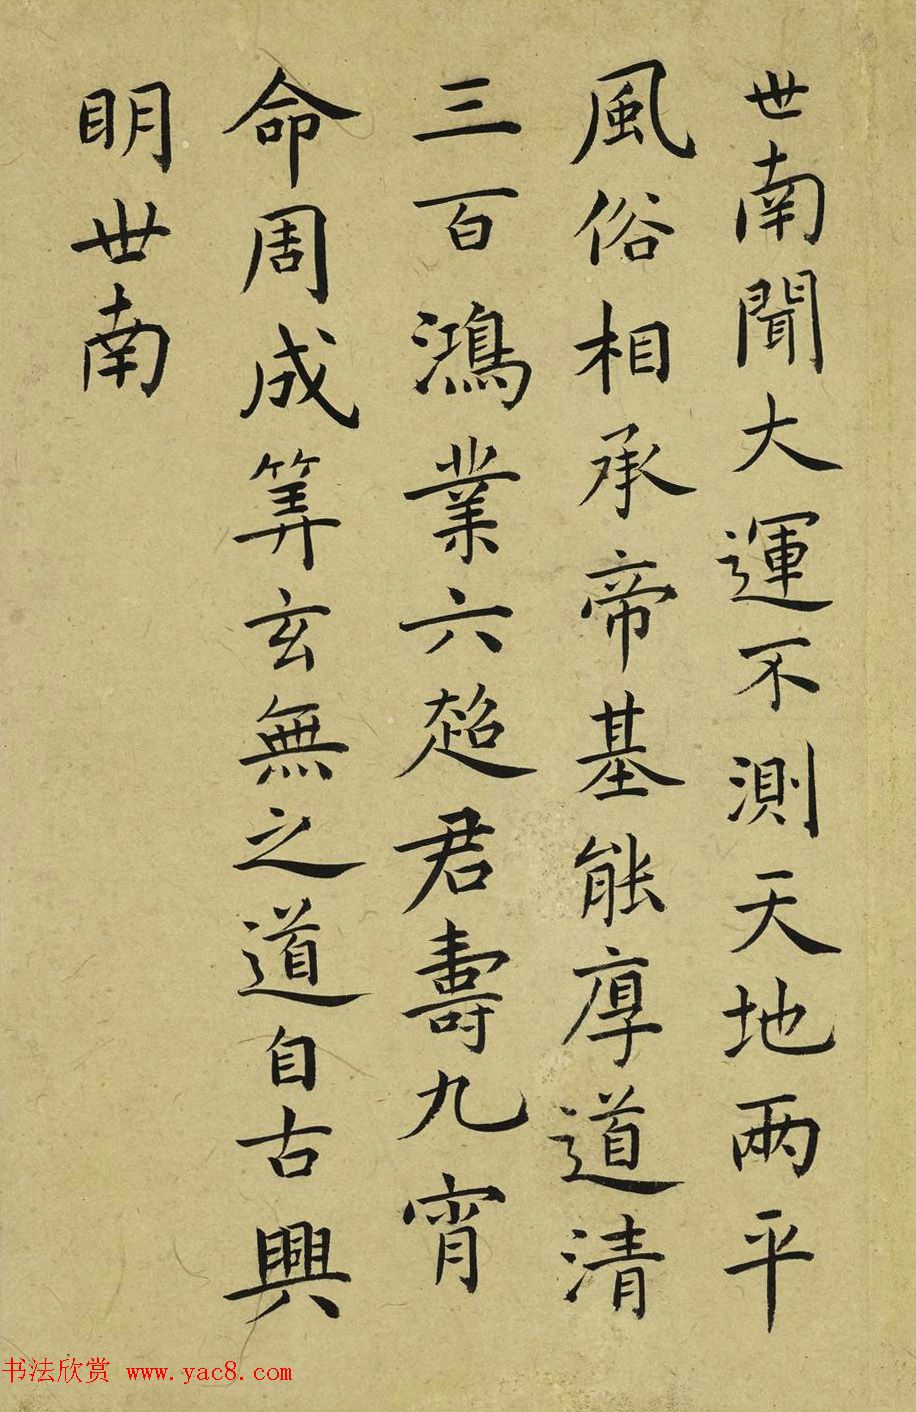 世南聞大運不測天地兩平
風俗相承帝基能厚道清
三百鴻業六超君壽九霄
命周成筭玄無之道自古興
明世南
书法欣赏 www.yac8.com